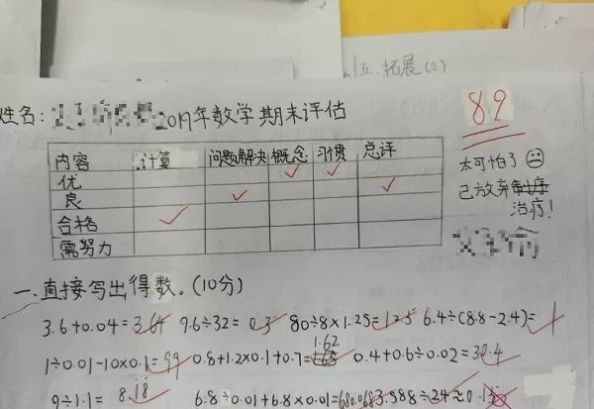 五.拓展(2)
姓名: 2019年数学期末评估
89
内容 计算 问题解决 概念 习惯 总评
优 ✓ ✓
良 ✓ ✓
合格 ✓
需努力
太可怕了☹
已放弃
治疗!
一、直接写出得数。(10分)
3.6+0.04=3.64 9.6÷32=0.3 80÷8×1.25=12.5 6.4÷(8.8-2.4)=1
1÷0.01-10×0.1=99 0.8+1.2×0.1+0.7=1.62 0.4+0.6÷0.02=30.4
9÷1.1=8.18 6.8÷0.01+6.8×0.01=680.068 3.588÷24≈0.15